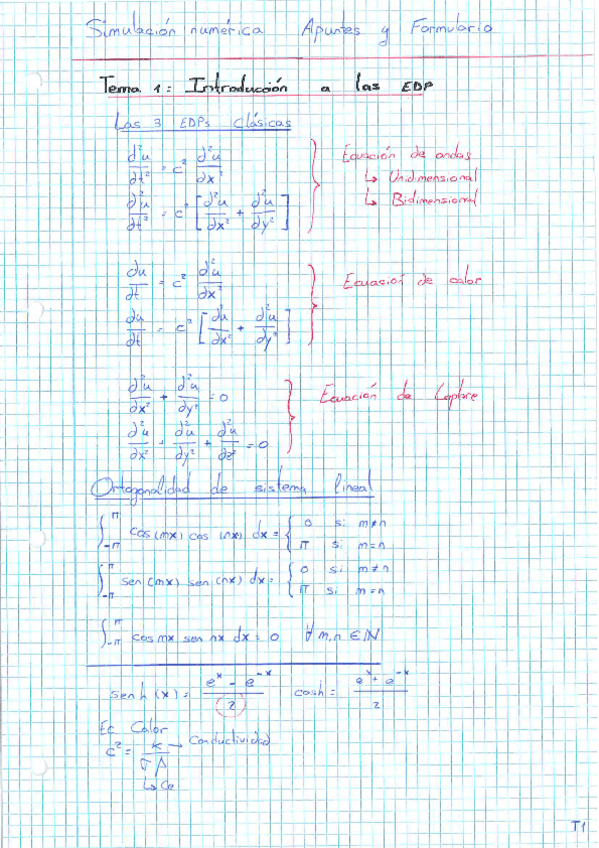 Simulación numérica Apuntes y Formulario
Tema 1: Introducción a las EDP
Las 3 EDPs Clásicas
∂²u/∂t² = c² ∂²u/∂x²
∂²u/∂t² = c² [∂²u/∂x² + ∂²u/∂y²]
Ecuación de ondas
↳ Unidimensional
↳ Bidimensional
∂u/∂t = c² ∂²u/∂x²
∂u/∂t = c² [∂²u/∂x² + ∂²u/∂y²]
Ecuasión de calor
∂²u/∂x² + ∂²u/∂y² = 0
∂²u/∂x² + ∂²u/∂y² + ∂²u/∂z² = 0
Ecuación de Laplace
Ortogonalidad de sistema lineal
∫_{-π}^{π} cos(mx) cos(nx) dx = { 0 si m≠n
π si m=n
∫_{-π}^{π} sen(mx) sen(nx) dx = { 0 si m≠n
π si m=n
∫_{-π}^{π} cos mx sen nx dx = 0 ∀ m,n ∈ ℕ
senh(x) = (e^x - e^-x)/2 cosh = (e^x + e^-x)/2
Ec Calor
c² = K/(σρ) → Conductividad
↳ Ce
T1